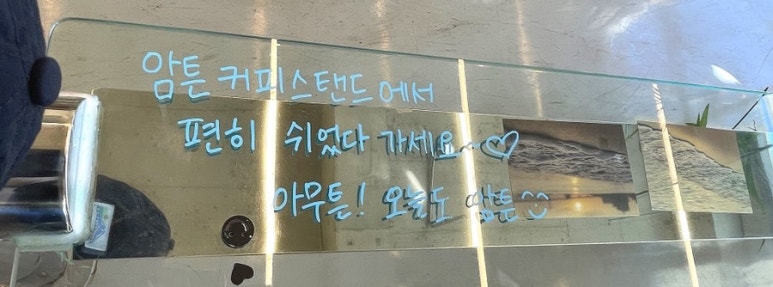 암튼 커피스탠드에서
편히 쉬었다 가세요~♡
아무튼! 오늘도 암튼☺